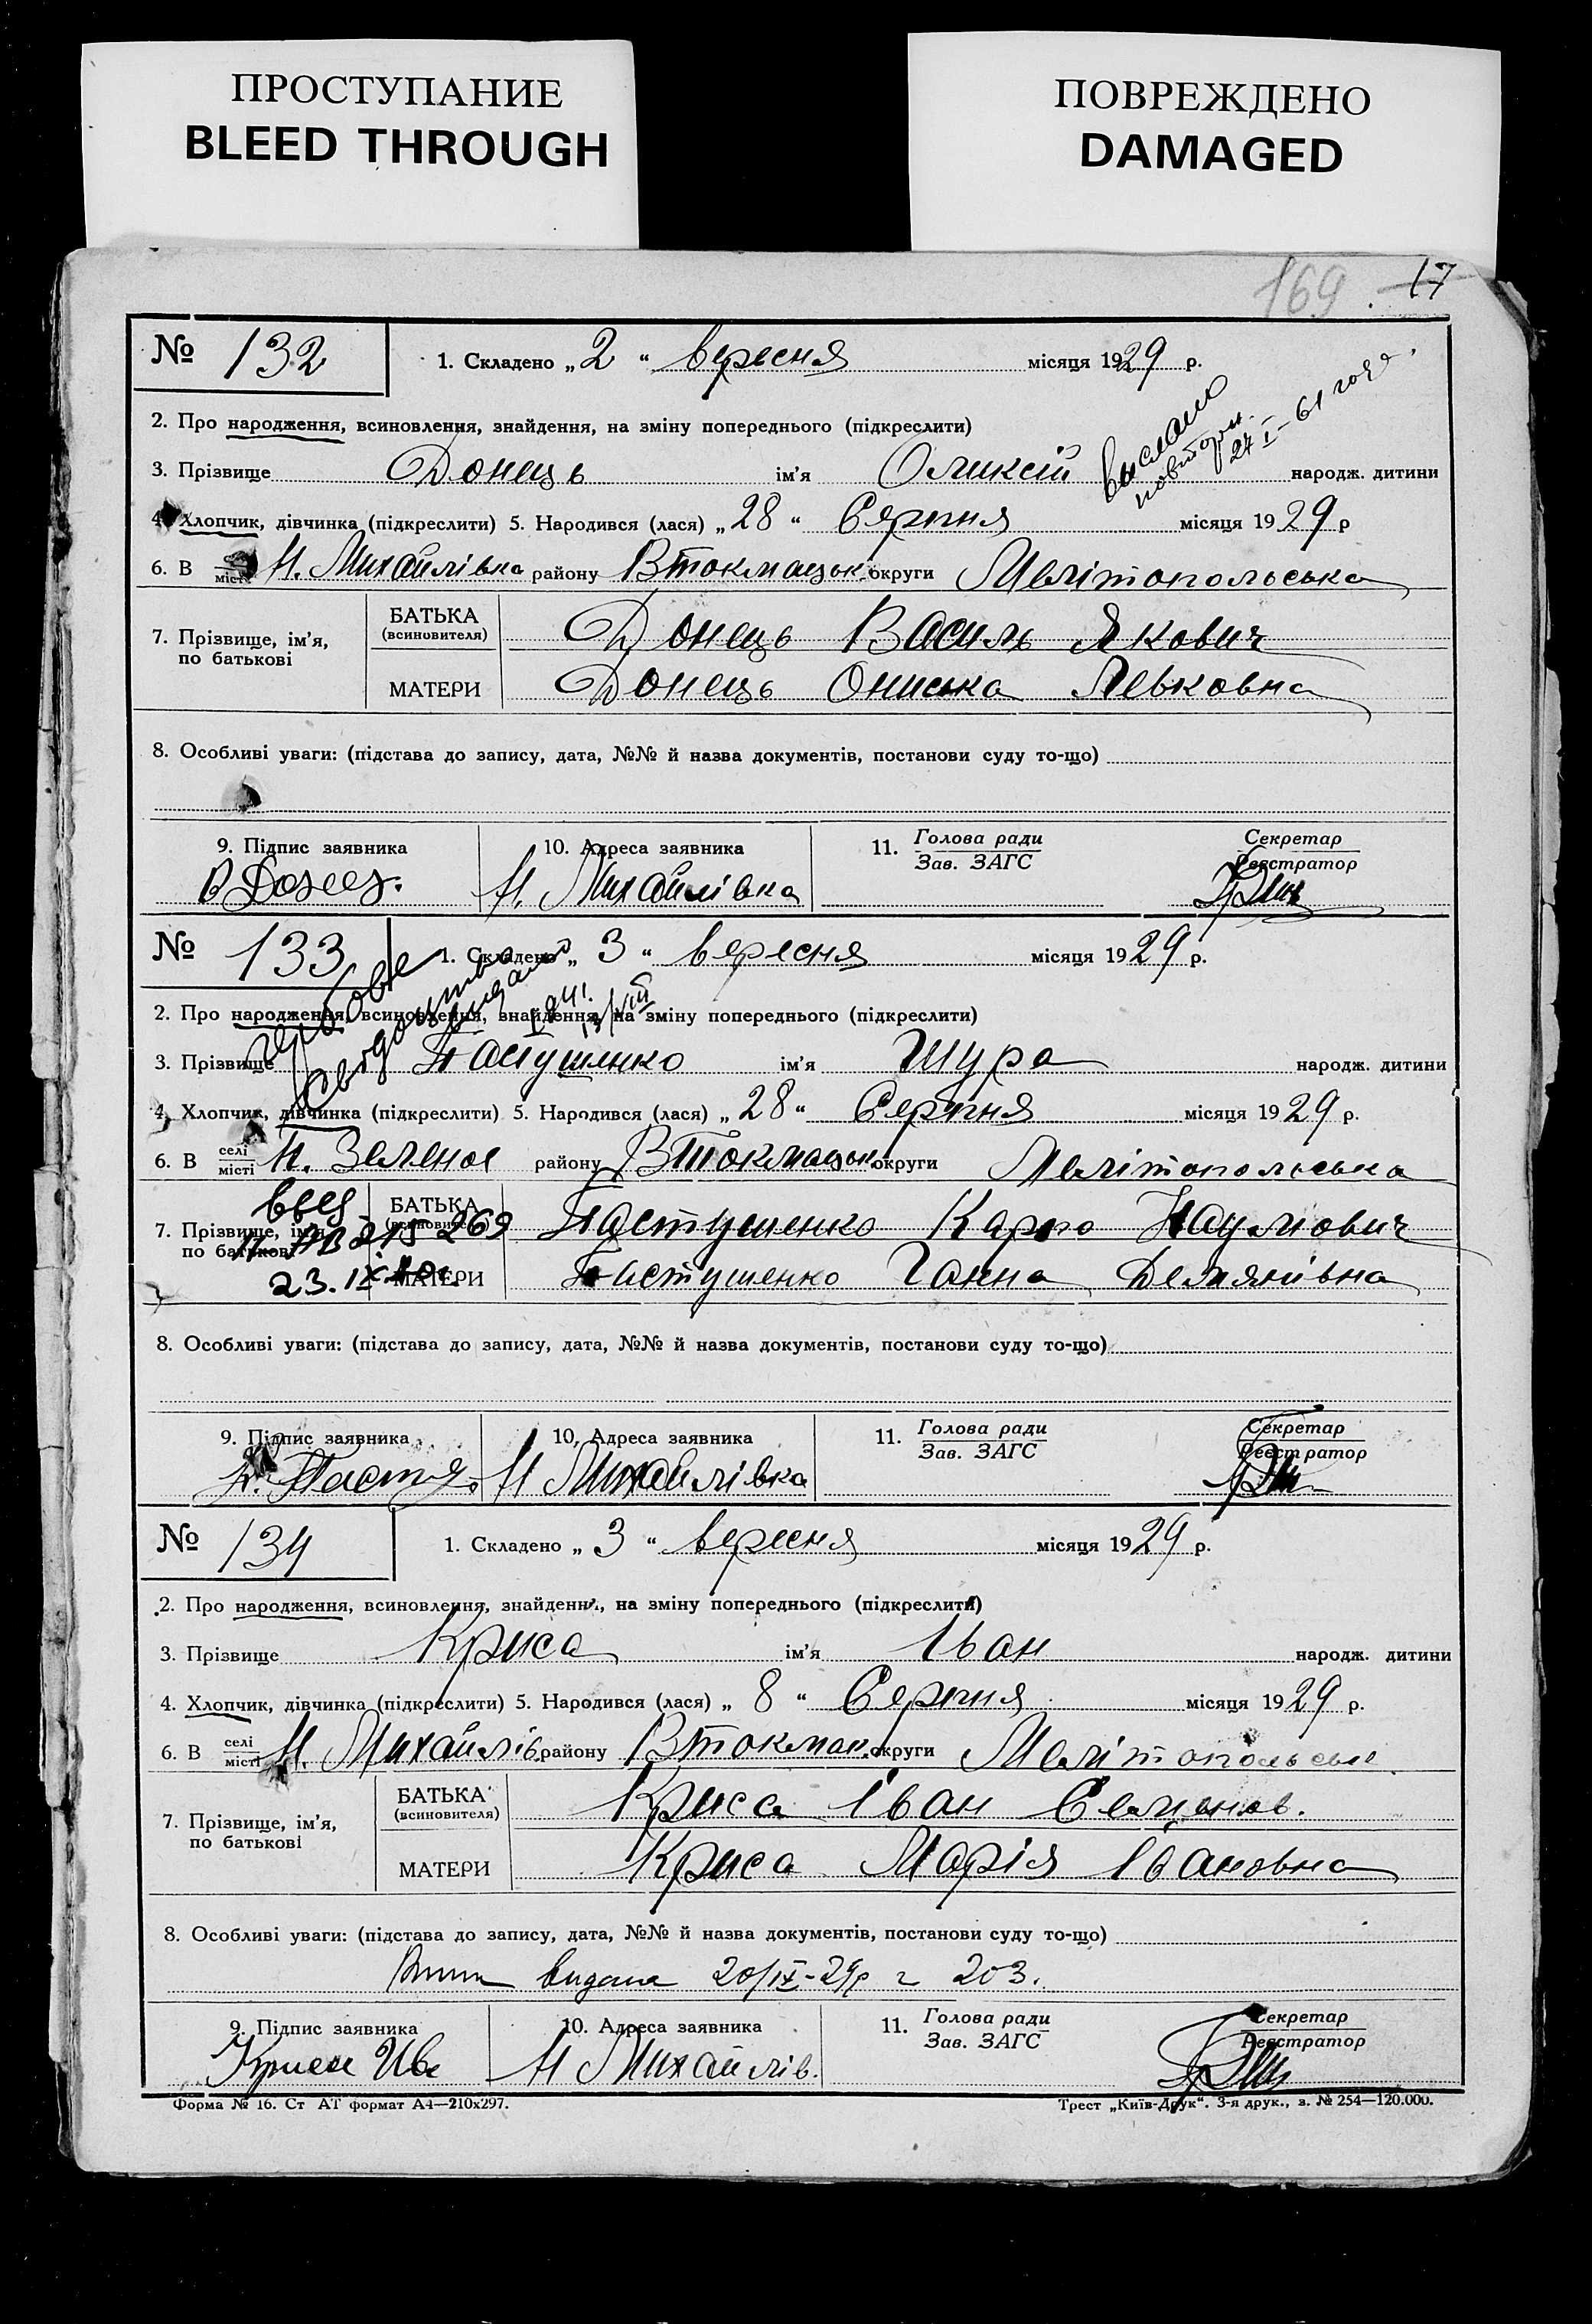 ПРОСТУПАНИЕ
BLEED THROUGH
ПОВРЕЖДЕНО
DAMAGED
169 17
№ 132 1. Складено „ 2 “ вересня місяця 1929 р.
2. Про народження, всиновлення, знайдення, на зміну попереднього (підкреслити)
выслано
24 I - 61 года
3. Прізвище Донець ім’я Оликсій народж. дитини
4. Хлопчик, дівчинка (підкреслити) 5. Народився (лася) „ 28 “ Серпня місяця 1929 р
6. В місті Н. Михайлівка району ВТокмацьк. округи Мелітопольська
7. Прізвище, ім’я, по батькові
БАТЬКА (всиновителя) Донець Василь Якович
МАТЕРИ Донець Ониська Левковна
8. Особливі уваги: (підстава до запису, дата, №№ й назва документів, постанови суду то-що)
9. Підпис заявника 10. Адреса заявника 11. Голова ради Зав. ЗАГС Секретар Реєстратор
В Донец. Н. Михайлівка
№ 133 1. Складено „ 3 “ вересня місяця 1929 р.
2. Про народження, всиновлення, знайдення, на зміну попереднього (підкреслити)
3. Прізвище Пастушенко ім’я Шура народж. дитини
4. Хлопчик, дівчинка (підкреслити) 5. Народився (лася) „ 28 “ Серпня місяця 1929 р.
6. В селі місті Н. Зеленое району ВТокмацьк округи Мелітопольська
7. Прізвище, ім’я, по батькові
БАТЬКА (всиновителя) Пастушенко Карпо Наумович
МАТЕРИ Пастушенко Ганна Демянівна
269
23. IX
8. Особливі уваги: (підстава до запису, дата, №№ й назва документів, постанови суду то-що)
9. Підпис заявника 10. Адреса заявника 11. Голова ради Зав. ЗАГС Секретар Реєстратор
Н Михайлівка
№ 134 1. Складено „ 3 “ вересня місяця 1929 р.
2. Про народження, всиновлення, знайдення, на зміну попереднього (підкреслити)
3. Прізвище Криса ім’я Іван народж. дитини
4. Хлопчик, дівчинка (підкреслити) 5. Народився (лася) „ 8 “ Серпня місяця 1929 р.
6. В селі місті Н. Михайлів. району ВТокмац. округи Мелітопольськ.
7. Прізвище, ім’я, по батькові
БАТЬКА (всиновителя) Криса Іван Семенов.
МАТЕРИ Криса Марія Івановна
8. Особливі уваги: (підстава до запису, дата, №№ й назва документів, постанови суду то-що)
видана 20/IX-29р 203.
9. Підпис заявника 10. Адреса заявника 11. Голова ради Зав. ЗАГС Секретар Реєстратор
Криса Ив Н Михайлів.
Форма № 16. Ст АТ формат А4—210х297. Трест „Київ-Друк“. 3-я друк., з. № 254—120.000.